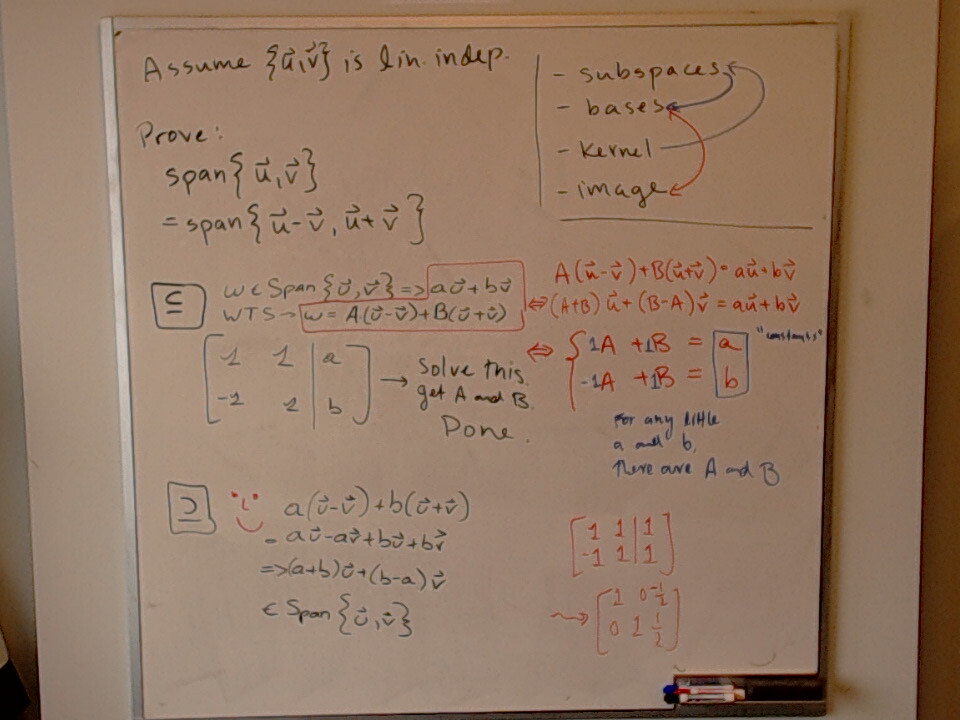 Assume {u⃗,v⃗} is lin. indep.
- subspaces
- bases
- Kernel
- image
Prove:
span{u⃗,v⃗}
=span{u⃗-v⃗, u⃗+v⃗}
⊆
w ∈ Span{u⃗,v⃗} => au⃗+bv⃗
WTS → w = A(u⃗-v⃗)+B(u⃗+v⃗)
A(u⃗-v⃗)+B(u⃗+v⃗)=au⃗+bv⃗
⇔ (A+B)u⃗+(B-A)v⃗=au⃗+bv⃗
⇔ { 1A +1B = a "constants"
-1A +1B = b
[ 1 1 | a
-1 1 | b ]
→ Solve this.
get A and B.
Done.
For any little
a and b,
there are A and B
⊇
a(u⃗-v⃗)+b(u⃗+v⃗)
= au⃗-av⃗+bu⃗+bv⃗
=>(a+b)u⃗+(b-a)v⃗
∈ Span{u⃗,v⃗}
[ 1 1 | 1
-1 1 | 1 ]
⇝ [ 1 0 -1/2
0 1 1/2 ]